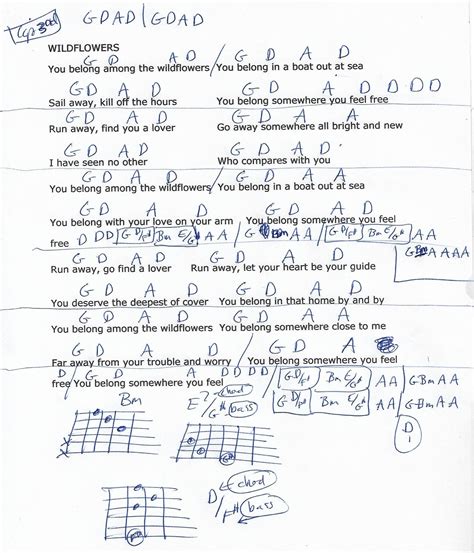 Cap 3rd GDAD | GDAD
WILDFLOWERS
G D A D / G D A D
You belong among the wildflowers You belong in a boat out at sea
G D A D G D A D D D D
Sail away, kill off the hours You belong somewhere you feel free
G D A D G D A A
Run away, find you a lover Go away somewhere all bright and new
G D A D G D A D
I have seen no other Who compares with you
G D A D G D A D
You belong among the wildflowers / You belong in a boat out at sea
G D A D G D A
You belong with your love on your arm / You belong somewhere you feel
free D D D G D/F# Bm E/G# A A / G Bm A A / G D/F# Bm E/G# A A
G Bm A A A A
G D A D G D A D
Run away, go find a lover Run away, let your heart be your guide
G D A D G D A D
You deserve the deepest of cover You belong in that home by and by
G D A D G D A D
You belong among the wildflowers You belong somewhere close to me
G D A D G D A
Far away from your trouble and worry / You belong somewhere you feel
D G D A D D D D G D/F# Bm E/G# A A G Bm A A
free You belong somewhere you feel G D/F# Bm E/G# A A G Bm A A
D
Bm E ? chod
/G# bass
D chod
/F# bass